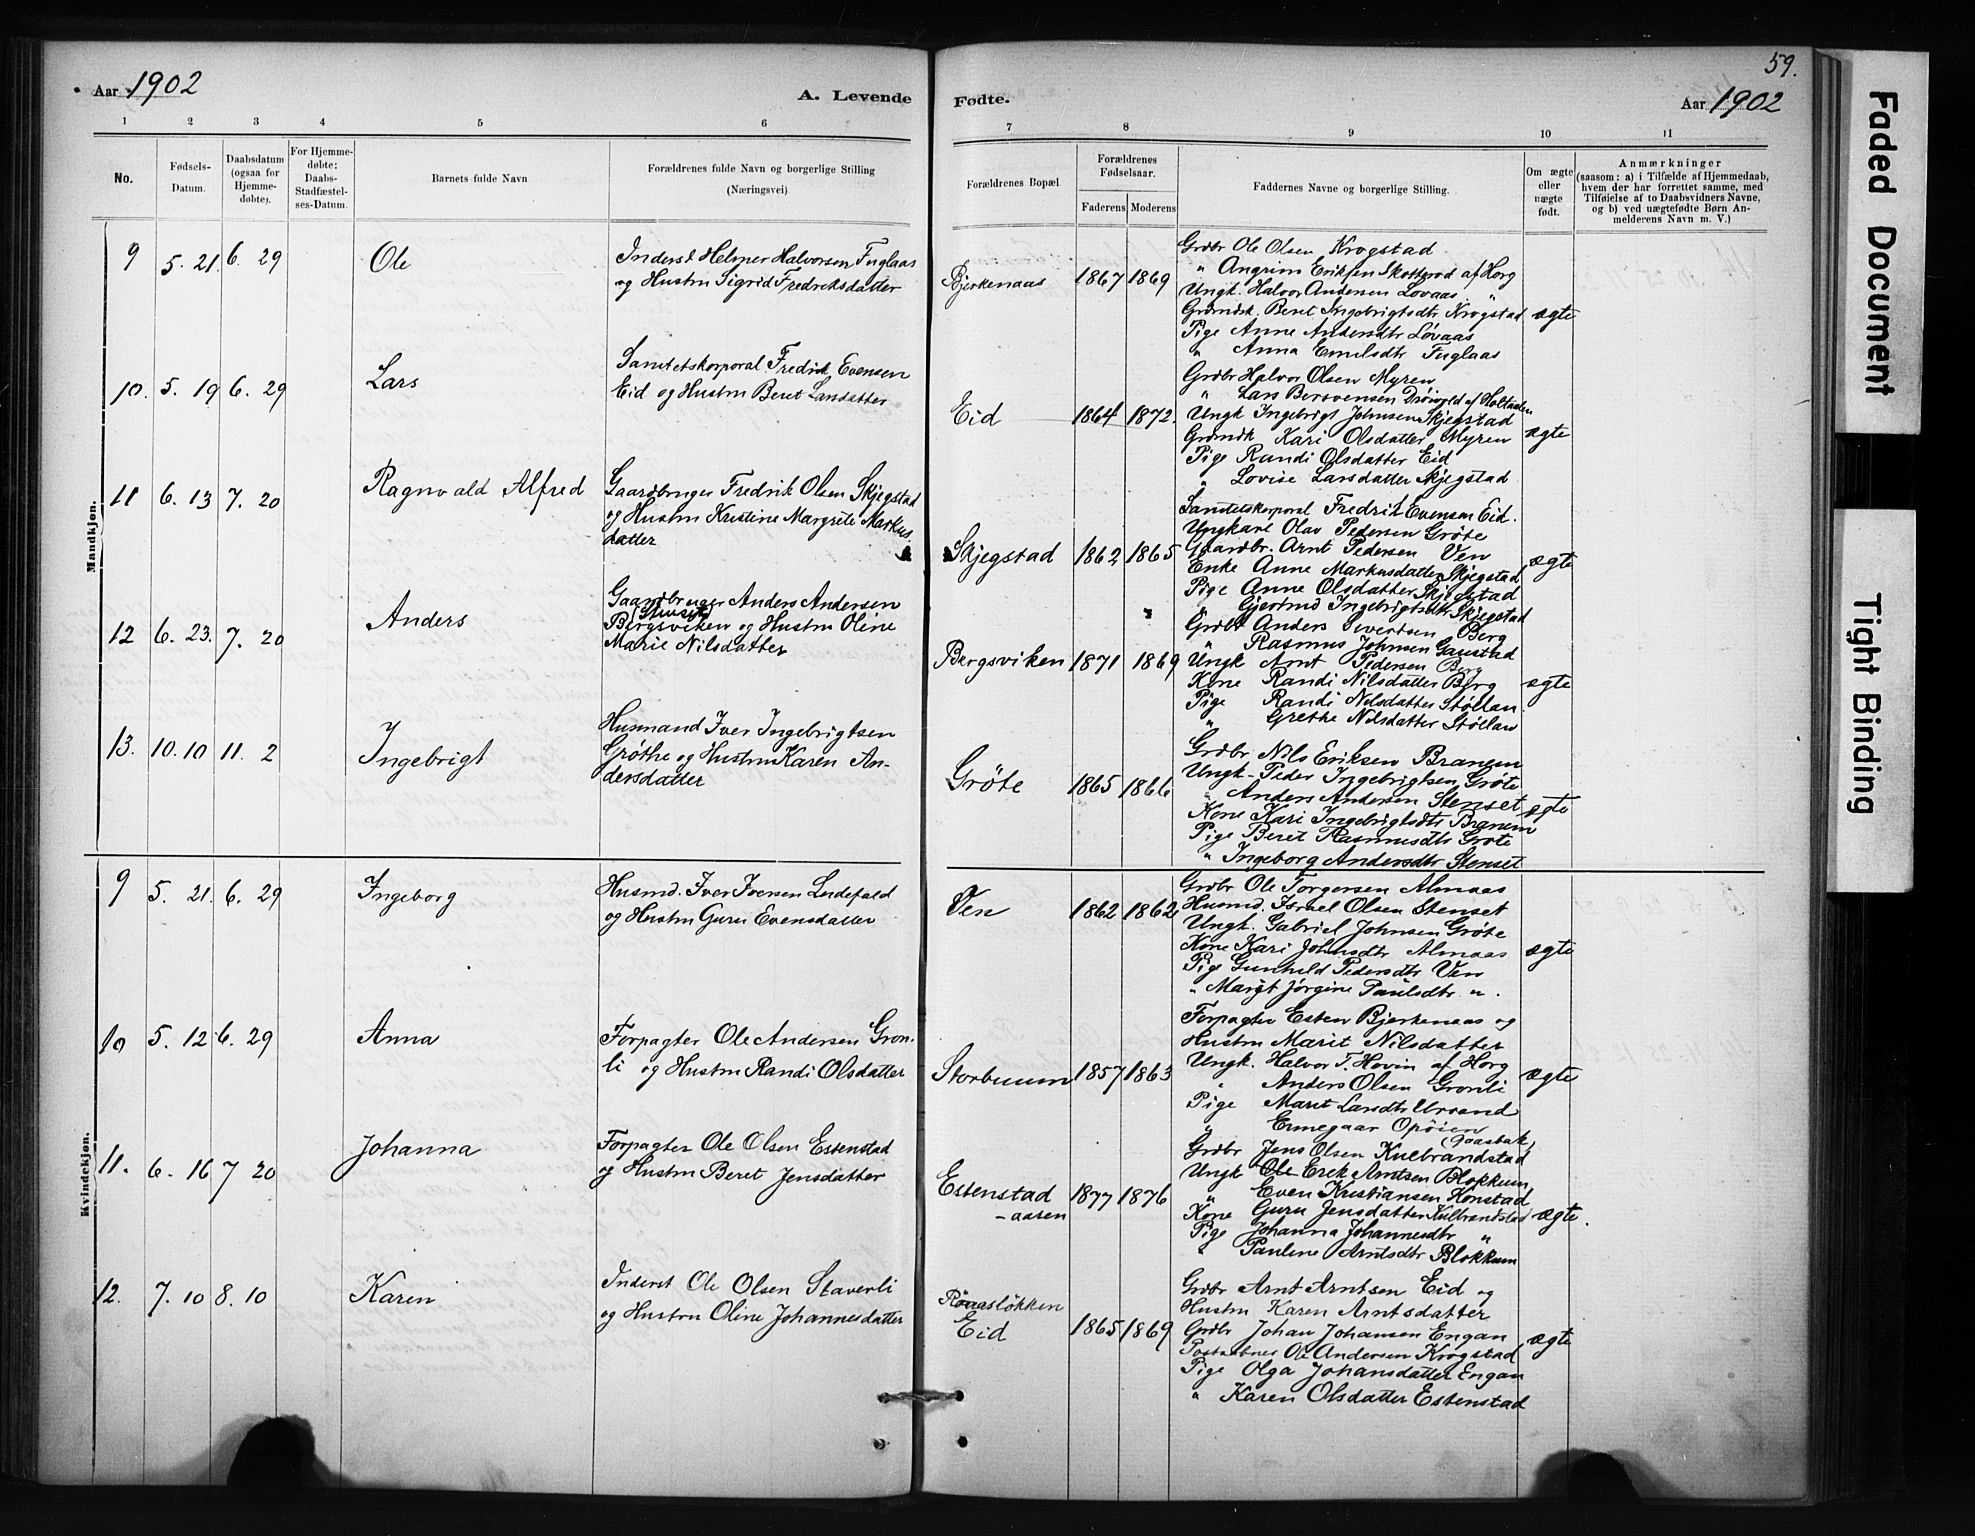 Aar 1902
A. Levende
Fødte.
59.
Aar 1902
1 2 3 4 5 6
7 8 9 10 11
No.
Fødsels-
Datum.
Daabsdatum
(ogsaa for
Hjemme-
døbte).
For Hjemme-
døbte:
Daabs-
Stadfæstel-
ses-Datum.
Barnets fulde Navn
Forældrenes fulde Navn og borgerlige Stilling
(Næringsvei)
Forældrenes Bopæl.
Forældrenes
Fødselsaar.
Faderens Moderens
Faddernes Navne og borgerlige Stilling.
Om ægte
eller
uægte
født.
Anmærkninger
(saasom: a) i Tilfælde af Hjemmedaab,
hvem der har forrettet samme, med
Tilføielse af to Daabsvidners Navne,
og b) ved uægtefødte Børn An-
melderens Navn m. V.)
Mandkjøn.
9 5. 21. 6. 29 Ole
Inderst Helmer Halvorsen Fuglaas
og Hustru Sigrid Fredriksdatter
Bjerkenaas 1867 1869
Grdbr Ole Olsen Krogstad
" Angrim Eriksen Skotterod af Horg
Ungk. Halvor Andersen Lovaas "
Grdmdk. Beret Ingebrigtsdtr Krogstad ægte
Pige Anne Andersdtr Løvaas
" Anna Emilsdtr Fuglaas
10. 5. 19 6. 29 Lars
Sanitetskorporal Fredrik Evensen
Eid og Hustru Beret Larsdatter
Eid 1864 1872.
Grdbr Halvor Olsen Myren
" Lars Bersvensen Drøivold af Holtaalen
Ungk Ingebrigt Johnsen Skjegstad
Grdmdk Kari Olsdatter Myren ægte
Pige Randi Olsdatter Eid
" Lovise Larsdatter Skjegstad
11 6. 13 7. 20 Ragnvald Alfred
Gaardbruger Fredrik Olsen Skjegstad
og Hustru Kristine Margrete Markus
datter
Skjegstad 1862 1865
Sanitetskorporal Fredrik Evensen Eid.
Ungkarl Olav Pedersen Grøte
Gaardbr. Arnt Pedersen Ven
Enke Anne Markusdatter Skjegstad ægte
Pige Anne Olsdatter Skjegstad
" Gjertrud Ingebrigtsdtr Skjegstad
12 6. 23. 7. 20 Anders
Gaardbruger Anders Andersen
(Stenset)
Bergsviken og Hustru Oline
Marie Nilsdatter
Bergsviken 1871 1869
Grdbr Anders Sivertsen Berg
" Rasmus Johnsen Gaustad
Ungk Arnt Pedersen Berg
Kone Randi Nilsdatter Berg ægte
Pige Randi Nilsdatter Støllan
" Grethe Nilsdatter Støllan
13. 10. 10 11. 2 Ingebrigt
Husmand Iver Ingebrigtsen
Grøthe og Hustru Karen An-
dersdatter
Gröte 1865 1866
Grdbr Nils Eriksen Branem
Ungk- Peder Ingebrigtsen Grøte
" Anders Andersen Stenset ægte
Kone Kari Ingebrigtsdtr Branem
Pige Beret Rasmusdtr Grøte
" Ingeborg Andersdtr Stenset
Kvindekjøn.
9 5. 21. 6. 29 Ingeborg
Husmd. Iver Iversen Lidefald
og Hustru Guru Evensdatter
Ven 1862 1862
Grdbr Ole Torgersen Almaas
Husmd. Israel Olsen Stenset
Ungk. Gabriel Johnsen Grøte
Kone Kari Johnsdtr Almaas ægte
Pige Gunhild Pedersdtr Ven
" Margt Jørgine Paulsdtr " .
10 5. 12 6. 29 Anna
Forpagter Ole Andersen Gron-
li og Hustru Randi Olsdatter
1857 1863
Forpagter Esten Bjerkenaas og
Hustru Marit Nilsdatter
Ungk. Halvor T. Hovin af Horg
" Anders Olsen Gronli ægte
Pige Marit Larsdtr
" Ermegaar Opöien
11. 6. 16 7 20 Johanna
Forpagter Ole Olsen Estenstad
og Hustru Beret Jensdatter
Estenstad
-aaren 1877 1876
(Gaasbak)
Grdbr Jens Olsen Kulbrandstad
Ungk Ole Erek Arntsen Blokkum
" Even Kristiansen Honstad
Kone Guru Jensdatter Kulbrandstad ægte.
Pige Johanna Johannesdtr "
" Pauline Arntsdtr Blokkum
12. 7. 10 8. 10 Karen
Inderst Ole Olsen Staverli
og Hustru Oline Johannesdatter
Rönaaslökken
Eid 1865 1869
Grdbr Arnt Arntsen Eid og
Hustru Karen Arntsdatter
Grdbr Johan Johansen Engan ægte
Ole Andersen Krogstad
Pige Olga Johansdatter Engan
" Karen Olsdatter Estenstad
Faded Document
Tight Binding